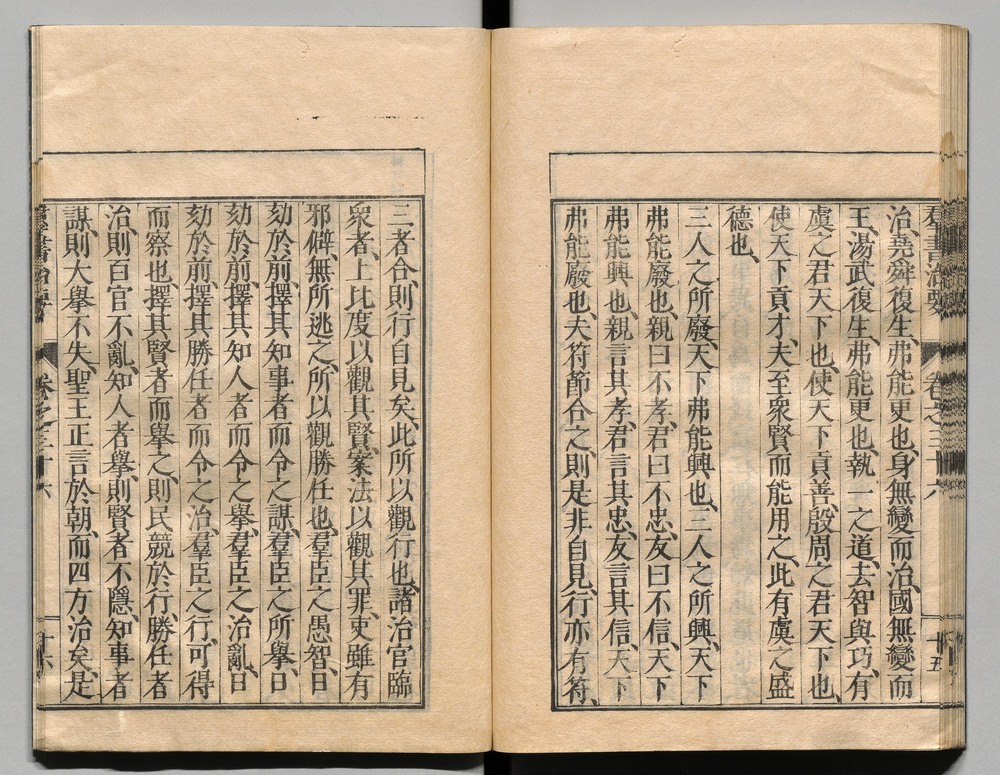 羣書治要 卷之三十六 十五
治、堯舜復生、弗能更也、身無變而治、國無變而
王、湯武復生、弗能更也、執一之道、去智與巧、有
虞之君天下也、使天下貢善、殷周之君天下也、
使天下貢才、夫至衆賢而能用之、此有虞之盛
德也、
三人之所廢、天下弗能興也、三人之所興、天下
弗能廢也、親曰不孝、君曰不忠、友曰不信、天下
弗能興也、親言其孝、君言其忠、友言其信、天下
弗能廢也、夫符節合之、則是非自見、行亦有符、
三者合、則行自見矣、此所以觀行也、諸治官臨
衆者、上比度以觀其賢、案法以觀其罪、吏雖有
邪僻、無所逃之、所以觀勝任也、羣臣之愚智、日
効於前、擇其知事者而令之謀、羣臣之所舉、日
効於前、擇其知人者而令之舉、羣臣之治亂、日
効於前、擇其勝任者而令之治、羣臣之行、可得
而察也、擇其賢者而舉之、則民競於行、勝任者
治、則百官不亂、知人者舉、則賢者不隱、知事者
謀、則大舉不失、聖王正言於朝、而四方治矣、是
羣書治要 卷之三十六 十六